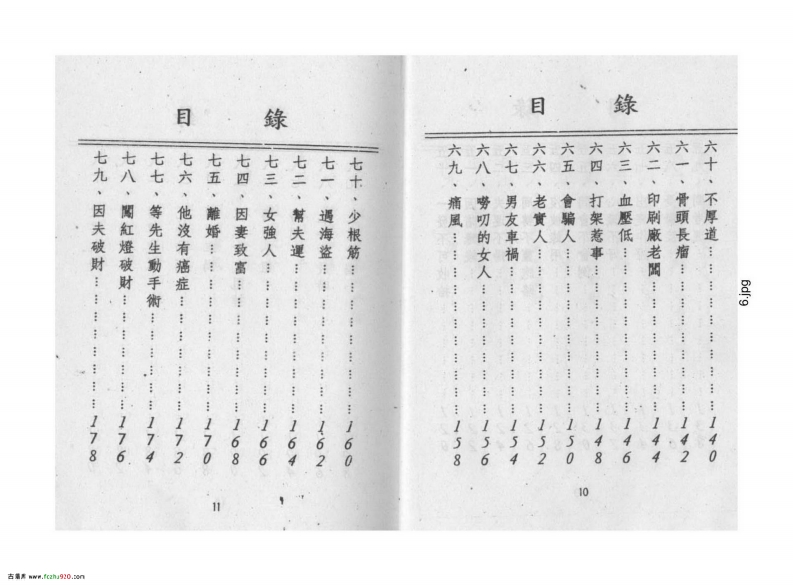 目錄
六十、不厚道……………………140
六一、骨頭長瘤……………………142
六二、印刷廠老闆……………………144
六三、血壓低……………………146
六四、打架惹事……………………148
六五、會騙人……………………150
六六、老實人……………………152
六七、男友車禍……………………154
六八、嘮叨的女人……………………156
六九、痛風……………………158
10
目錄
七十、少根筋……………………160
七一、遇海盜……………………162
七二、幫夫運……………………164
七三、女強人……………………166
七四、因妻致富……………………168
七五、離婚……………………170
七六、他沒有癌症……………………172
七七、等先生動手術……………………174
七八、闖紅燈破財……………………176
七九、因夫破財……………………178
11
6.jpg
古籍库 www.fczhu920.com